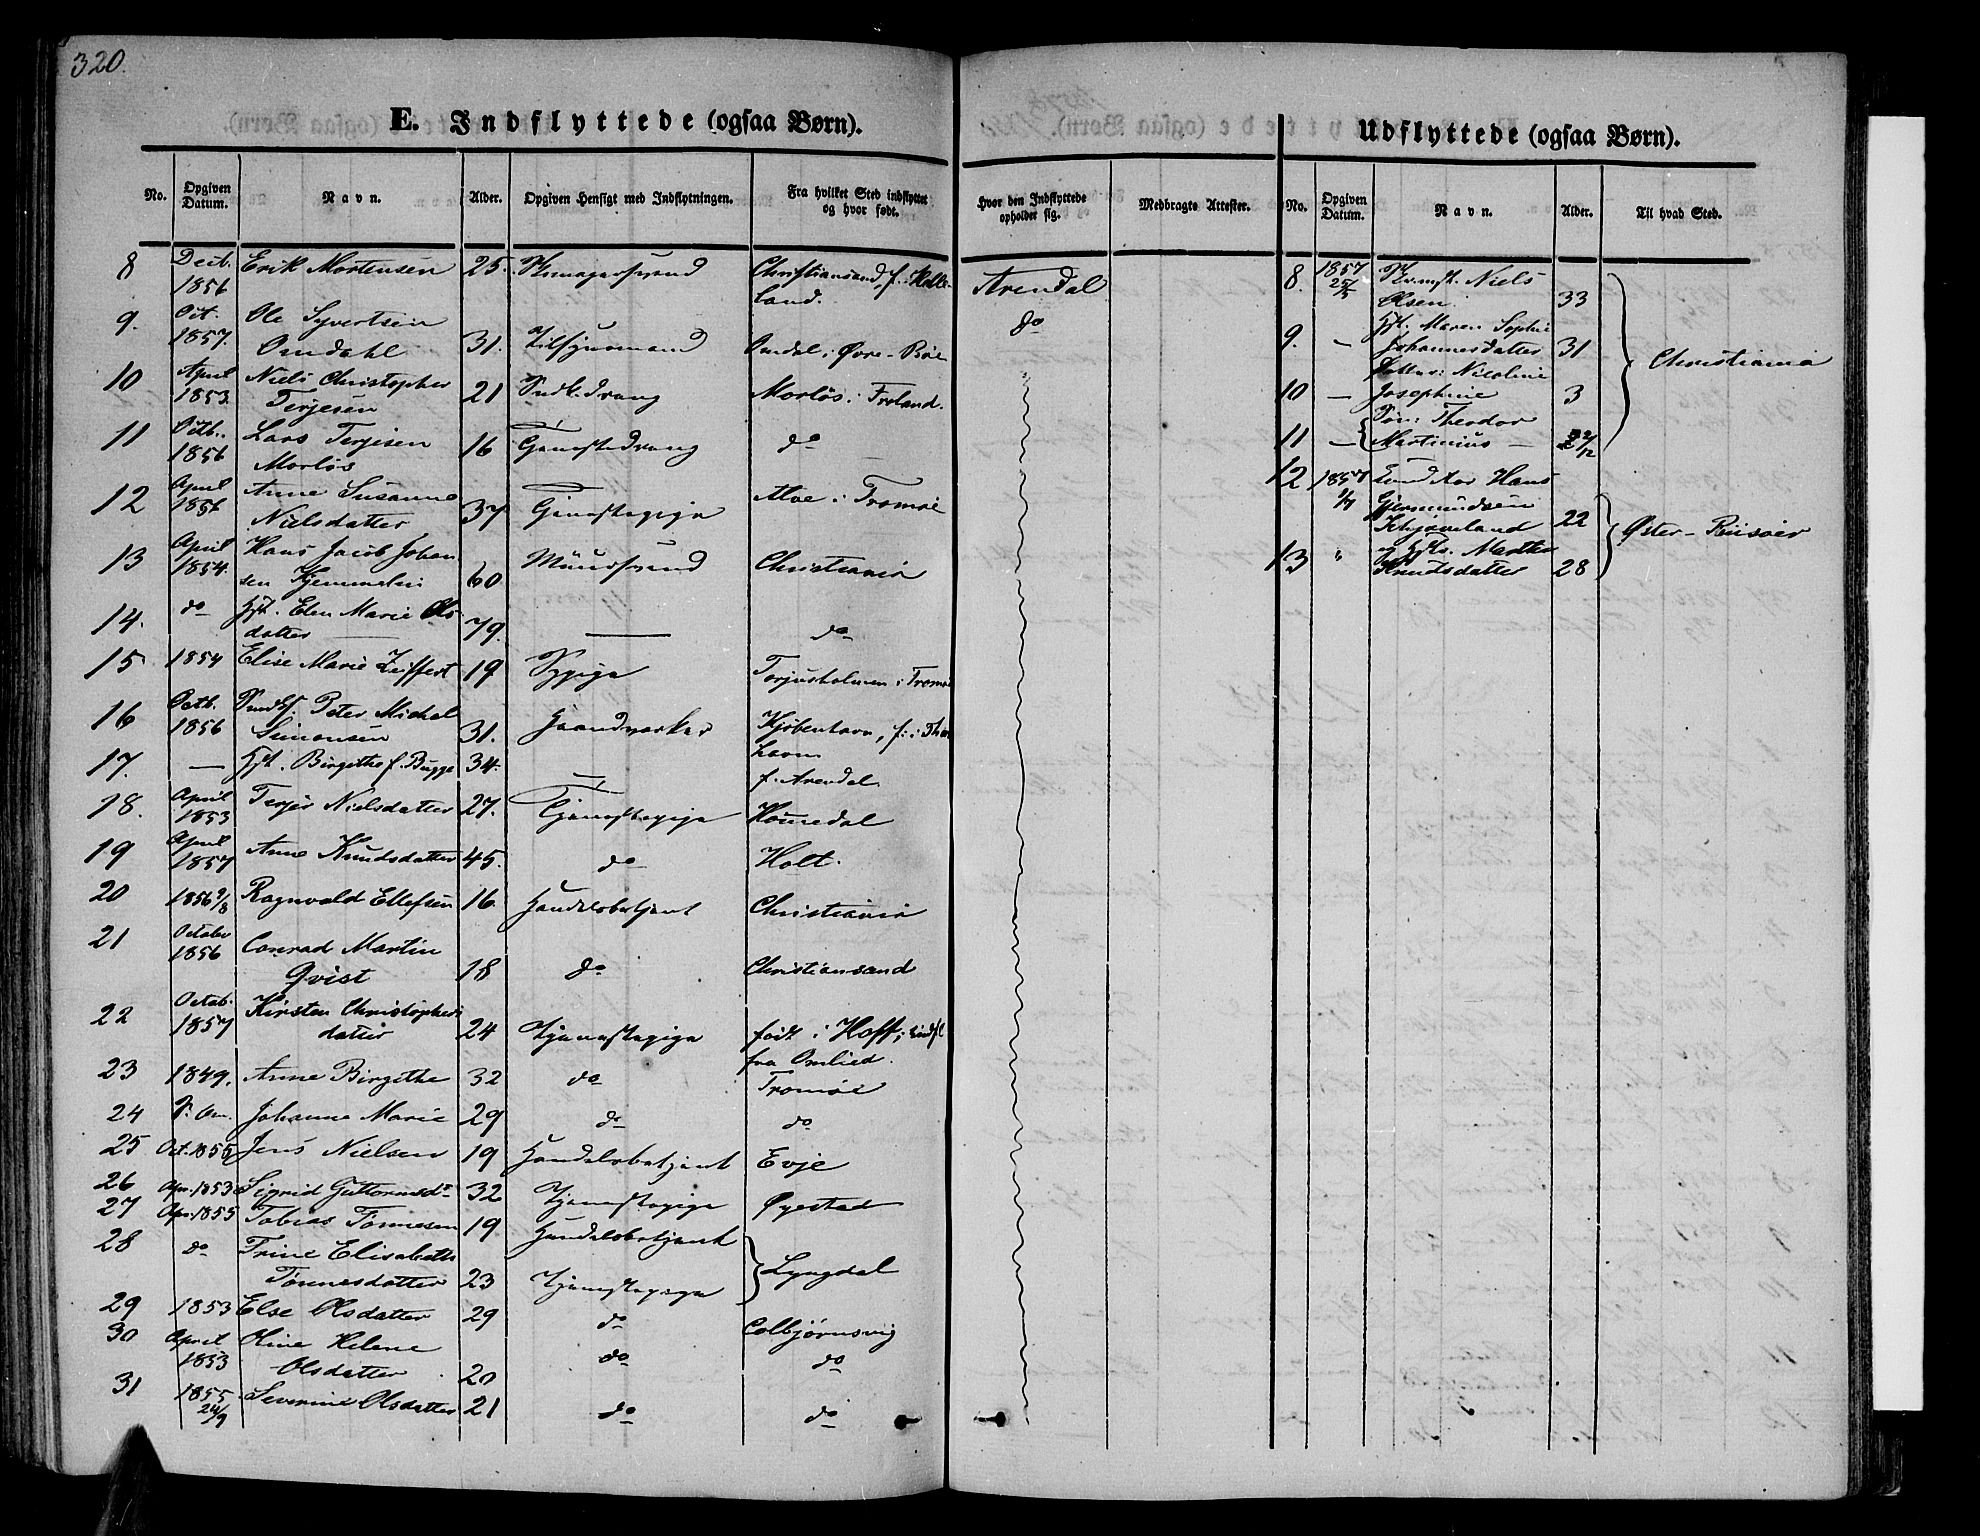 320.
E. Indflyttede (ogsaa Børn).
No. Opgiven Datum. Navn. Alder. Opgiven Hensigt med Indflytningen. Fra hvilket Sted indflyttet og hvor født.
8 Decb. 1856 Erik Mortensen 25. Skomagersvend Christiansand, f. i Halleland.
9. Oct. 1857. Ole Syvertsen Omdahl 31. Omdal i Øvre-
10 April 1853. Niels Christopher Terjesen 21 Snedk. dreng Morløs i Froland.
11 Octb. 1856 Lars Terjesen Morløs 16 Tjenestedreng do
12 April 1856 Anne Susanne Nielsdatter 37 Tjenestepige Alve i Tromøe
13 April 1854. Hans Jacob Johansen 60 Muursvend Christiania
14. do Hst. Elen Marie Olsdatter 79. — do
15 1854 Elise Marie Zeiffert 19 Sypige Torjusholmen i Tromøe
16 Octb. 1856 Snedk. Peter Michal Simonsen 31. Haandværker Kjøbenhavn, f. i Thorshavn
17. — Hst. Birgithe f. Bugge 34. f. Arendal
18. April 1853 Terjer Nielsdatter 27. Tjenestepige Homedal
19 April 1857 Anne Knudsdatter 45. do Holt.
20 1856 9/8 Ragnvald Ellefsen 16 Handelsbetjent Christiania
21 October 1856 Conrad Martin Qvist 18 do Christiansand
22 Octob. 1857 Kirsten Christophersdatter 24 Tjenestepige født i Hoff, indfl. fra Omlied.
23 1849. Anne Birgithe 32 do Tromøe
24 Johanne Marie 29 do do
25 Oct. 1855 Jens Nielsen 19 Handelsbetjent Evje
26 Apr. 1853 Sigrid Guttormsdr 32 Tjenestepige Øyestad
27 Apr. 1855 Tobias Tønnesen 19 Handelsbetjent
28 do Trine Elisabeth Tønnesdatter 23 Tjenestepige } Lyngdal
29 1853 Else Olsdatter 29 do Colbjørnsvig
30 April 1853 Oline Helene Olsdatter 20 do do
31 1855 24/9 Severine Olsdatter 21 do do
Hvor den Indflyttede opholder sig. Medbragte Attester.
Arendal
do
Udflyttede (ogsaa Børn).
No. Opgiven Datum. Navn. Alder. Til hvad Sted.
8. 1857 25/5 Niels Olsen 33
9. — Hst. Maren Sophie Johannesdatter 31 } Christiania
10 — Datter: Nicoline Josephine 3
11 — Søn: Theodor Martinius —
12 1857 Hans Gjermundsen 22
13 " og Hst. Marthe Knudsdatter 28 } Øster-Riisøer